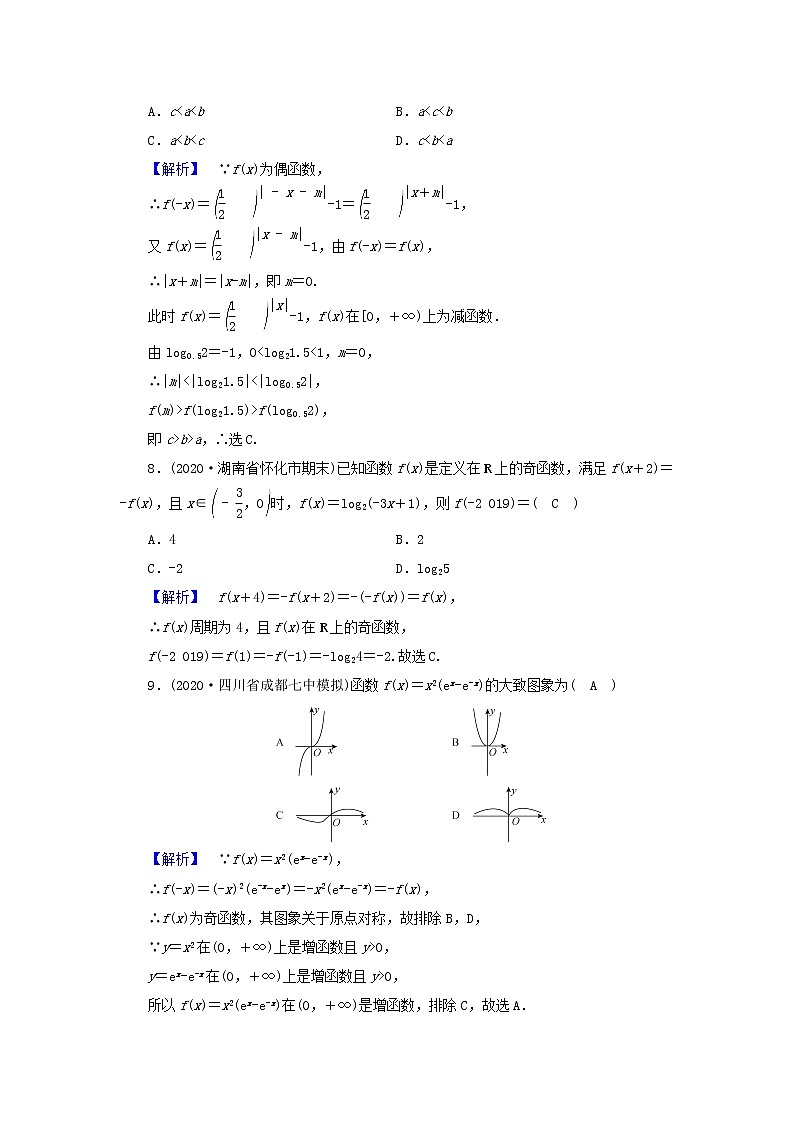 A. c<a<b B. a<c<b
C. a<b<c D. c<b<a
【解析】 ∵f(x)为偶函数,
∴f(-x)=(1/2)^|-x-m|-1=(1/2)^|x+m|-1,
又 f(x)=(1/2)^|x-m|-1,由 f(-x)=f(x),
∴|x+m|=|x-m|,即 m=0.
此时 f(x)=(1/2)^|x|-1,f(x)在[0,+∞)上为减函数.
由 log₀.₅2=-1,0<log₂1.5<1,m=0,
∴|m|<|log₂1.5|<|log₀.₅2|,
f(m)>f(log₂1.5)>f(log₀.₅2),
即 c>b>a,∴选 C.
8.(2020·湖南省怀化市期末)已知函数 f(x)是定义在 R 上的奇函数,满足 f(x+2)=
-f(x),且 x∈(-3/2,0)时,f(x)=log₂(-3x+1),则 f(-2 019)=( C )
A. 4 B. 2
C. -2 D. log₂5
【解析】 f(x+4)=-f(x+2)=-(-f(x))=f(x),
∴f(x)周期为 4,且 f(x)在 R 上的奇函数,
f(-2 019)=f(1)=-f(-1)=-log₂4=-2.故选 C.
9.(2020·四川省成都七中模拟)函数 f(x)=x²(eˣ-e⁻ˣ)的大致图象为( A )
A y O x B y O x
C y O x D y O x
【解析】 ∵f(x)=x²(eˣ-e⁻ˣ),
∴f(-x)=(-x)²(e⁻ˣ-eˣ)=-x²(eˣ-e⁻ˣ)=-f(x),
∴f(x)为奇函数,其图象关于原点对称,故排除 B,D,
∵y=x²在(0,+∞)上是增函数且 y>0,
y=eˣ-e⁻ˣ在(0,+∞)上是增函数且 y>0,
所以 f(x)=x²(eˣ-e⁻ˣ)在(0,+∞)是增函数,排除 C,故选 A.